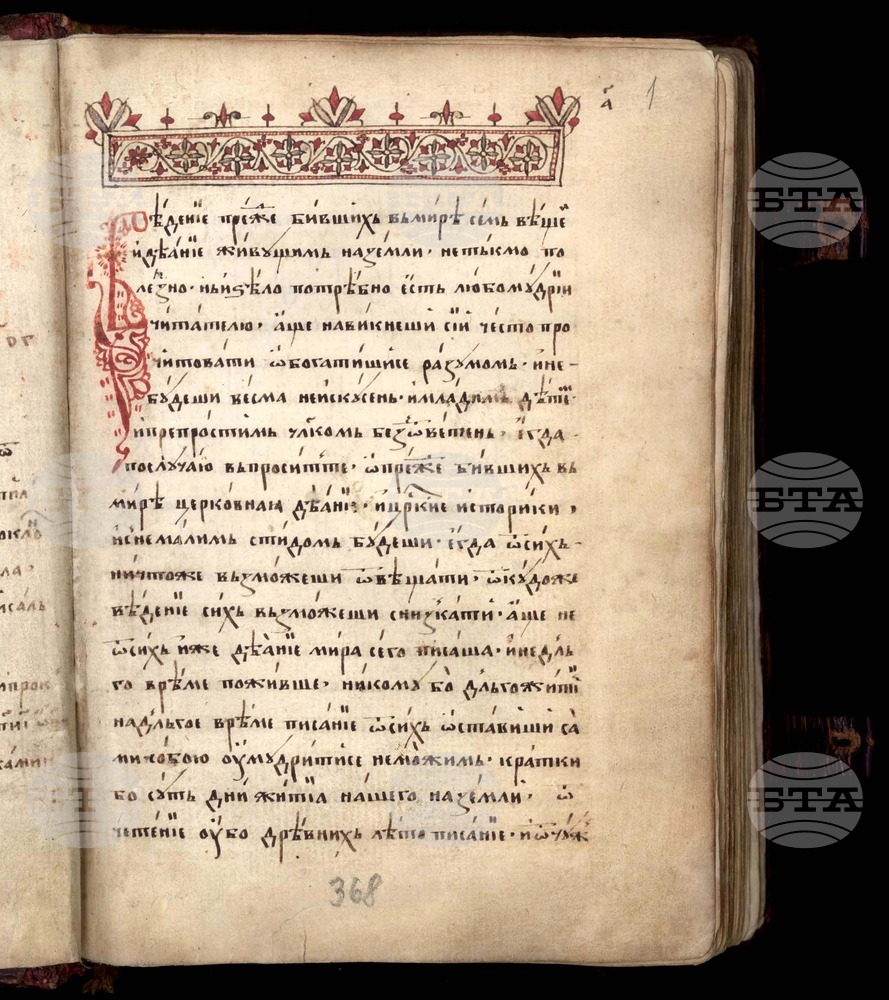 а҃
1
Вѣдéнїе прéже бившихъ въ мирѣ семъ вѣщеⷨ
и дѣѧ́нїе живущимъ на земли · не тъкмо по
лезно · нъ и ѕѣло потрѣбно ест любомудрїи
читателю · аще навикнеши сїй често про
читовати ѡбогатишисе разумомъ · и не
будеши весма неискусень · и младимъ дѣте
и препростимъ чл҃комъ без ѿвѣтень · егда
по случаю въпроситъте · ѡ прéже бившихъ въ
мирѣ церковнаѧ дѣѧнїе · и цр҃кие историки ·
и с немалимъ стидомъ будеши · егда ѿ сихъ
ничтоже възможеши ѿвѣщати · ѿкудоже
вѣденїе сихъ възможеши снизкати · аще не
ѿ сихъ иже дѣѧнїе мира сего писаша · и не дль
го врѣме поживше · никому бо дльгожитїї
на дльгое врѣме писанїе ѿ сихъ ѡставиши са
ми собою оумудритисе не можимъ · кратки
бо суть дни житїа нашего на земли · ѿ
четенїе оубо дрѣвнихъ лѣтописанїе · и ѿ чуж
368
БТА
БТА
БТА